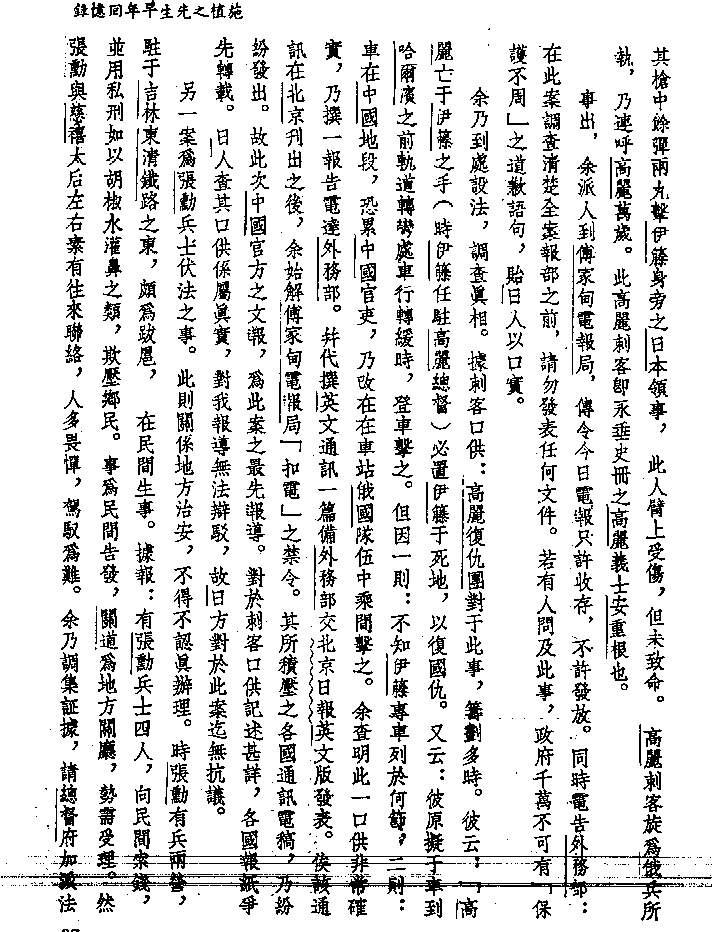 施植之先生早年回憶錄
其槍中餘彈兩丸擊伊籐身旁之日本領事，此人臂上受傷，但未致命。高麗刺客旋爲俄兵所
執，乃連呼高麗萬歲。此高麗刺客卽永垂史冊之高麗義士安重根也。
事出，余派人到傅家甸電報局，傳令今日電報只許收存，不許發放。同時電告外務部：
在此案調查清楚全案報部之前，請勿發表任何文件。若有人問及此事，政府千萬不可有「保
護不周」之道歉語句，貽日人以口實。
余乃到處設法，調查眞相。據刺客口供：高麗復仇團對于此事，籌劃多時。彼云：「高
麗亡于伊籐之手（時伊籐任駐高麗總督）必置伊籐于死地，以復國仇。又云：彼原擬于車到
哈爾濱之前軌道轉彎處車行轉緩時，登車擊之。但因一則：不知伊籐專車列於何節，二則：
車在中國地段，恐累中國官吏，乃改在在車站俄國隊伍中乘間擊之。余查明此一口供非常確
實，乃撰一報告電達外務部。幷代撰英文通訊一篇備外務部交北京日報英文版發表。俟該通
訊在北京刋出之後，余始解傅家甸電報局「扣電」之禁令。其所積壓之各國通訊電稿，乃紛
紛發出。故此次中國官方之文報，爲此案之最先報導。對於刺客口供記述甚詳，各國報紙爭
先轉載。日人查其口供係屬眞實，對我報導無法辯駁，故日方對於此案迄無抗議。
另一案爲張勳兵士伏法之事。此則關係地方治安，不得不認眞辦理。時張勳有兵兩營，
駐于吉林東淸鐵路之東，頗爲跋扈，在民間生事。據報：有張勳兵士四人，向民間索錢，
並用私刑如以胡椒水灌鼻之類，欺壓鄉民。事爲民間告發，關道爲地方關廳，勢需受理。然
張勳與慈禧太后左右素有往來聯絡，人多畏憚，駕馭爲難。余乃調集証據，請總督府加派法